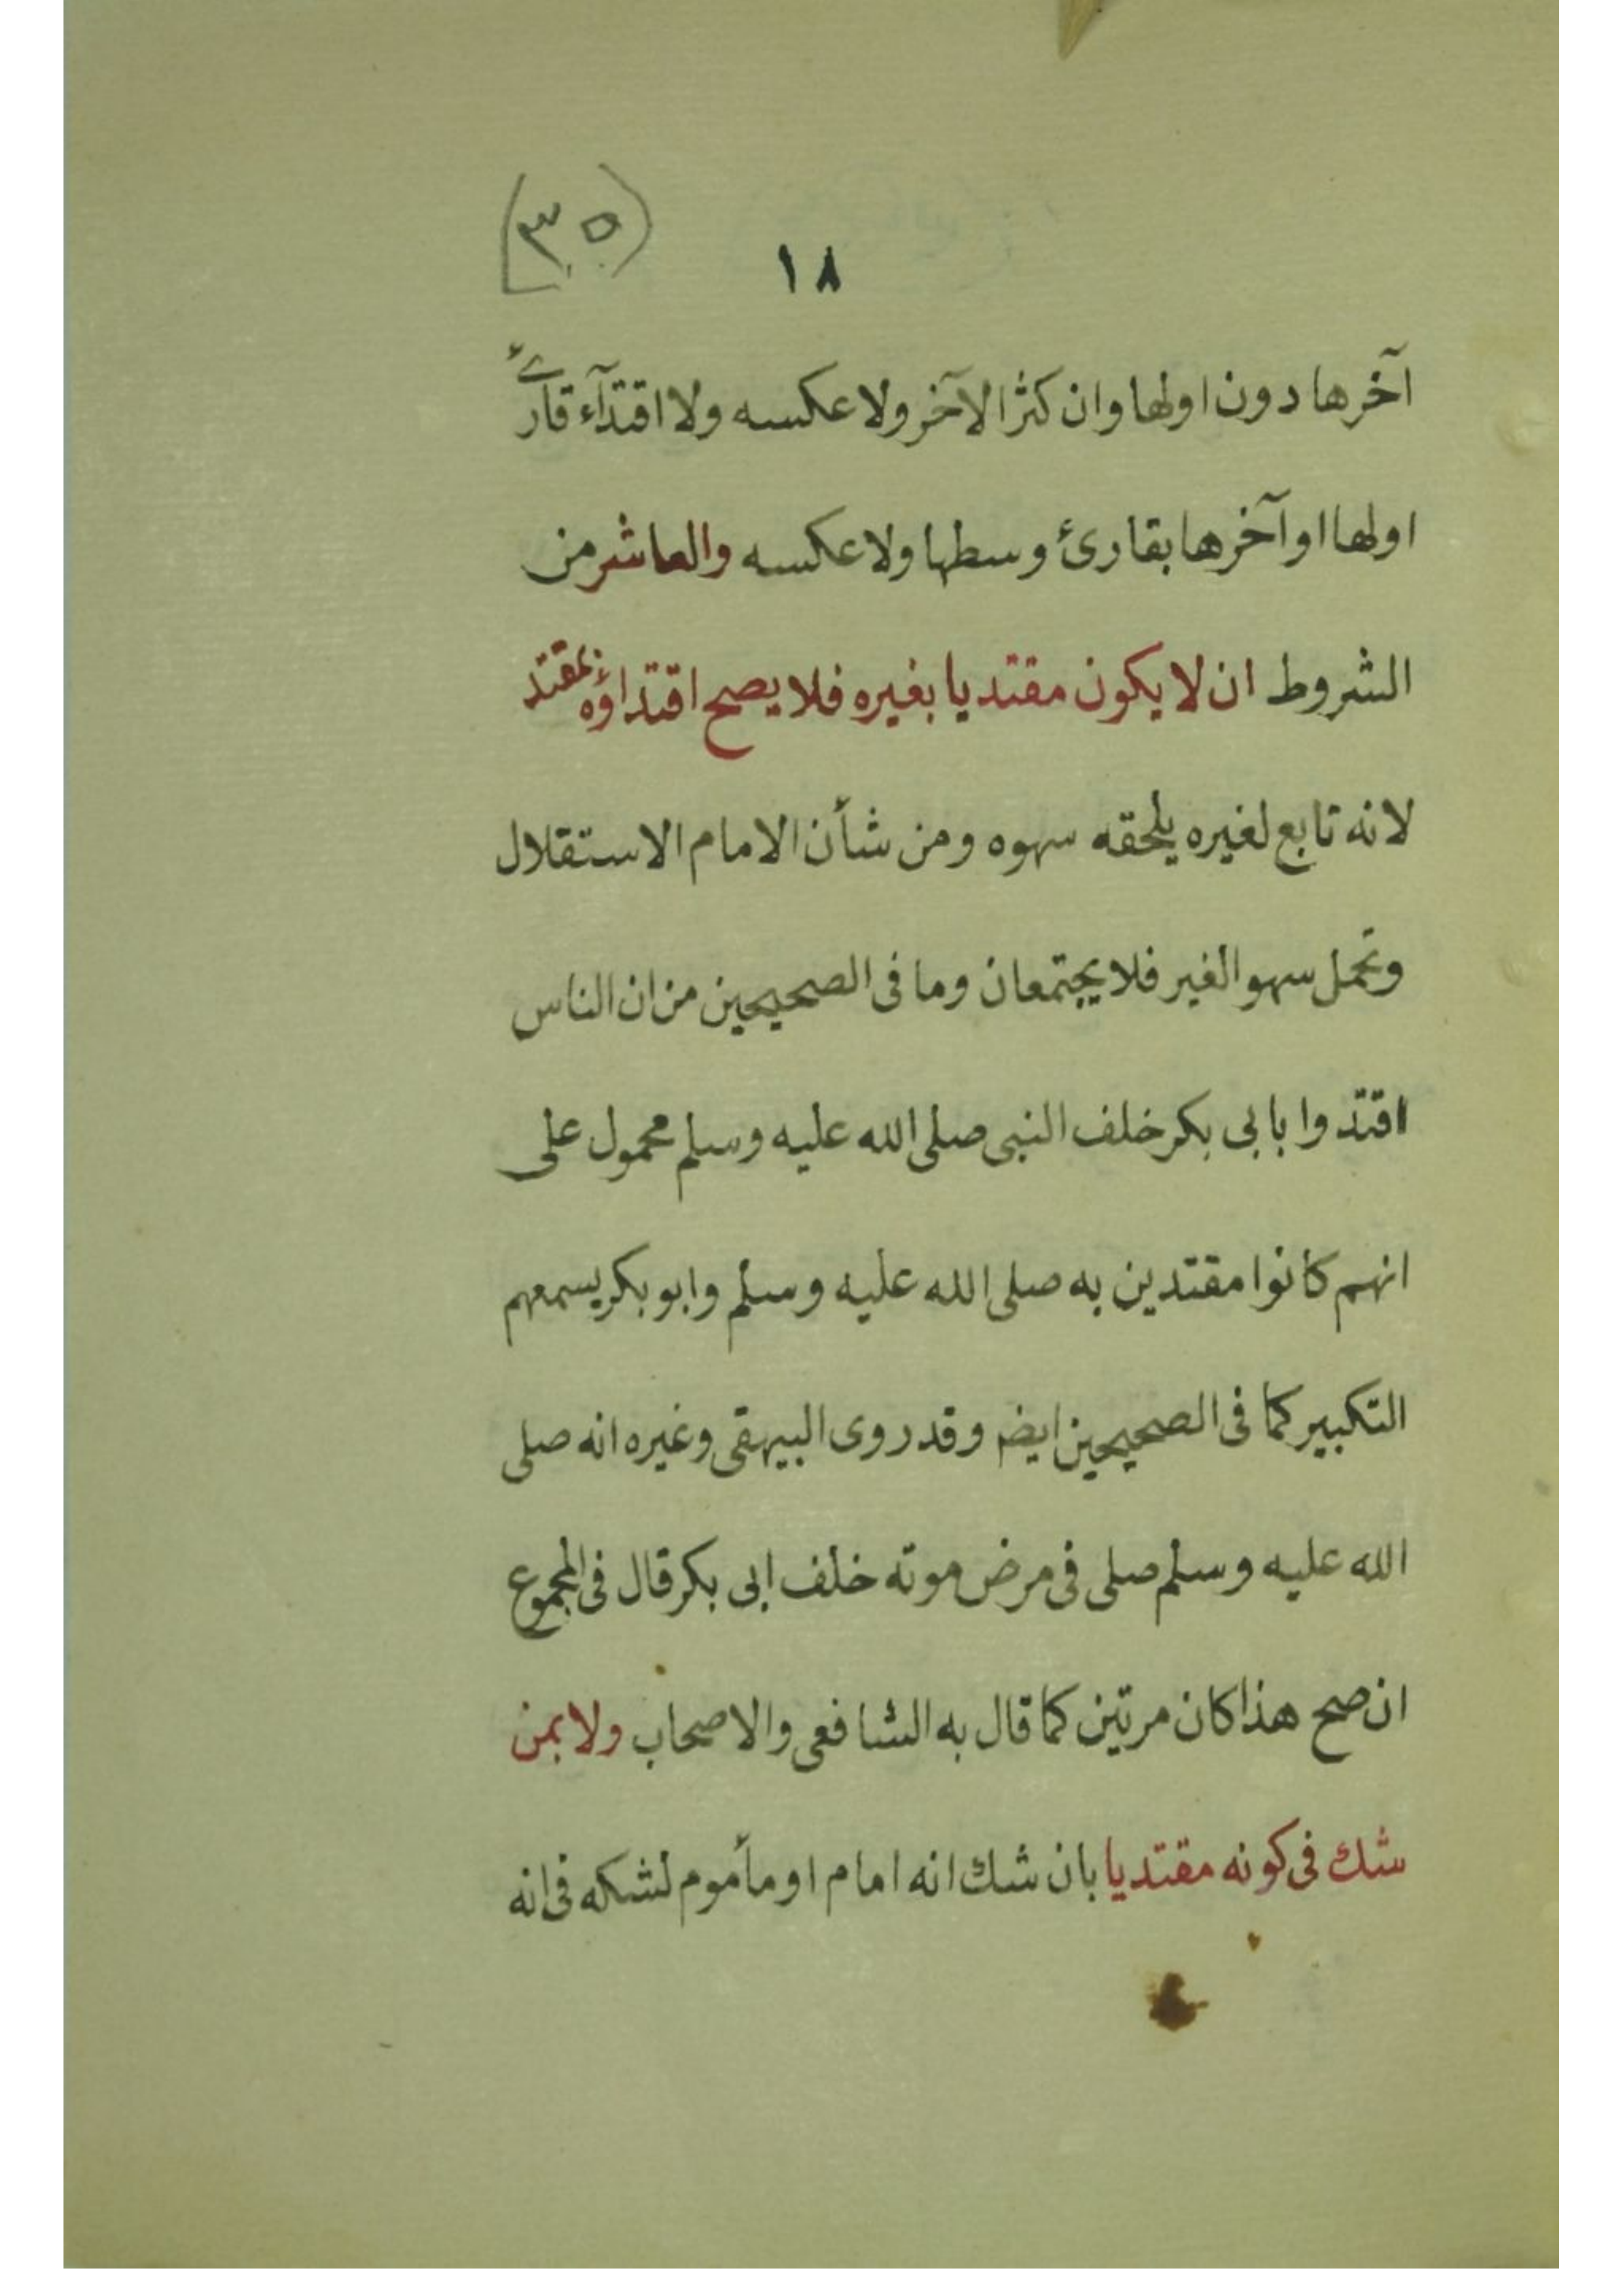 (٣٥)
١٨
آخرها دون اولها وان كثر الآخر ولا عكسه ولا اقتدآء قارئ
اولها او آخرها بقارئ وسطها ولا عكسه والعاشر من
الشروط ان لا يكون مقتديا بغيره فلا يصح اقتداؤه بمقتد
لانه تابع لغيره يلحقه سهوه ومن شأن الامام الاستقلال
وتحمل سهو الغير فلا يجتمعان وما فى الصحيحين من ان الناس
اقتدوا بابى بكر خلف النبى صلى الله عليه وسلم محمول على
انهم كانوا مقتدين به صلى الله عليه وسلم وابو بكر يسمعهم
التكبير كما فى الصحيحين ايضا وقد روى البيهقى وغيره انه صلى
الله عليه وسلم صلى فى مرض موته خلف ابى بكر قال فى المجموع
ان صح هذا كان مرتين كما قال به الشافعى والاصحاب ولا بمن
شك فى كونه مقتديا بان شك انه امام او مأموم لشكه فى انه